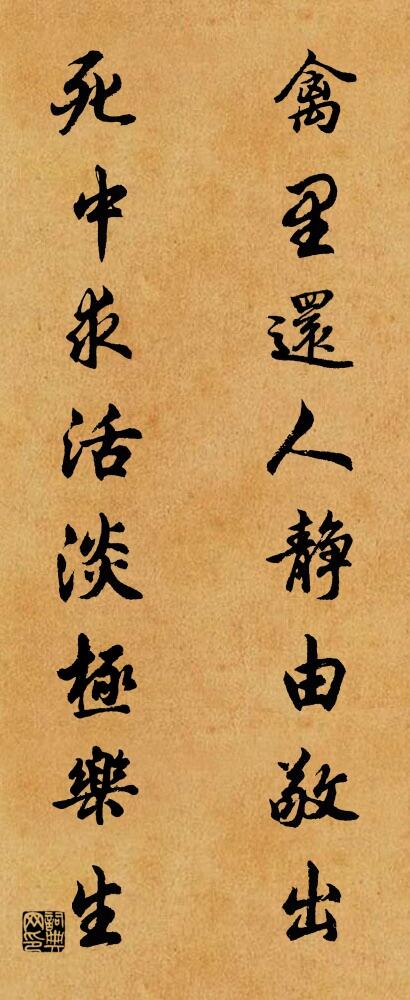 禽里還人靜由敬出
死中求活淡極樂生
詞典
网印